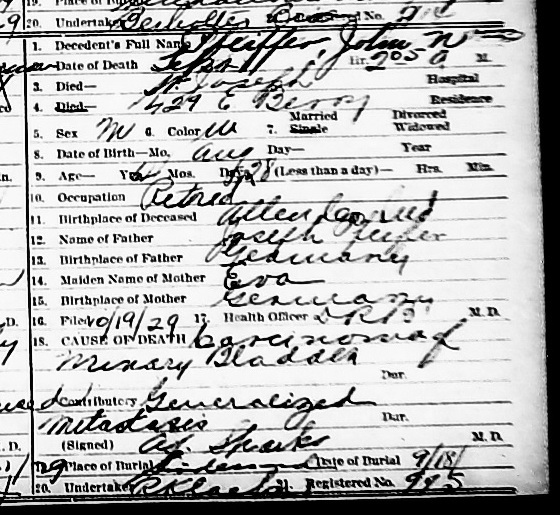 20. Undertaker No.
1. Decedent's Full Name Pfeiffer, John N
Date of Death Sept Hr. 2 05 A M.
3. Died— St Joseph Hospital
4. Died— 429 E Berry Residence
5. Sex M 6. Color W 7. Married Single Divorced Widowed
8. Date of Birth—Mo. Aug Day— Year
9. Age— Yrs Mos. Days 28 (Less than a day)— Hrs. Min.
10. Occupation Retired
11. Birthplace of Deceased Allen Co Ind
12. Name of Father Joseph
13. Birthplace of Father Germany
14. Maiden Name of Mother Eva
15. Birthplace of Mother Germany
16. Filed 10/19/29 17. Health Officer M. D.
18. CAUSE OF DEATH Carcinoma of
Urinary Bladder
Dur.
Contributory Generalized
Metastasis Dur.
(Signed) Sparks M. D.
19. Place of Burial Lindenwood Date of Burial 9/18/
20. Undertaker Klaehn 21. Registered No.